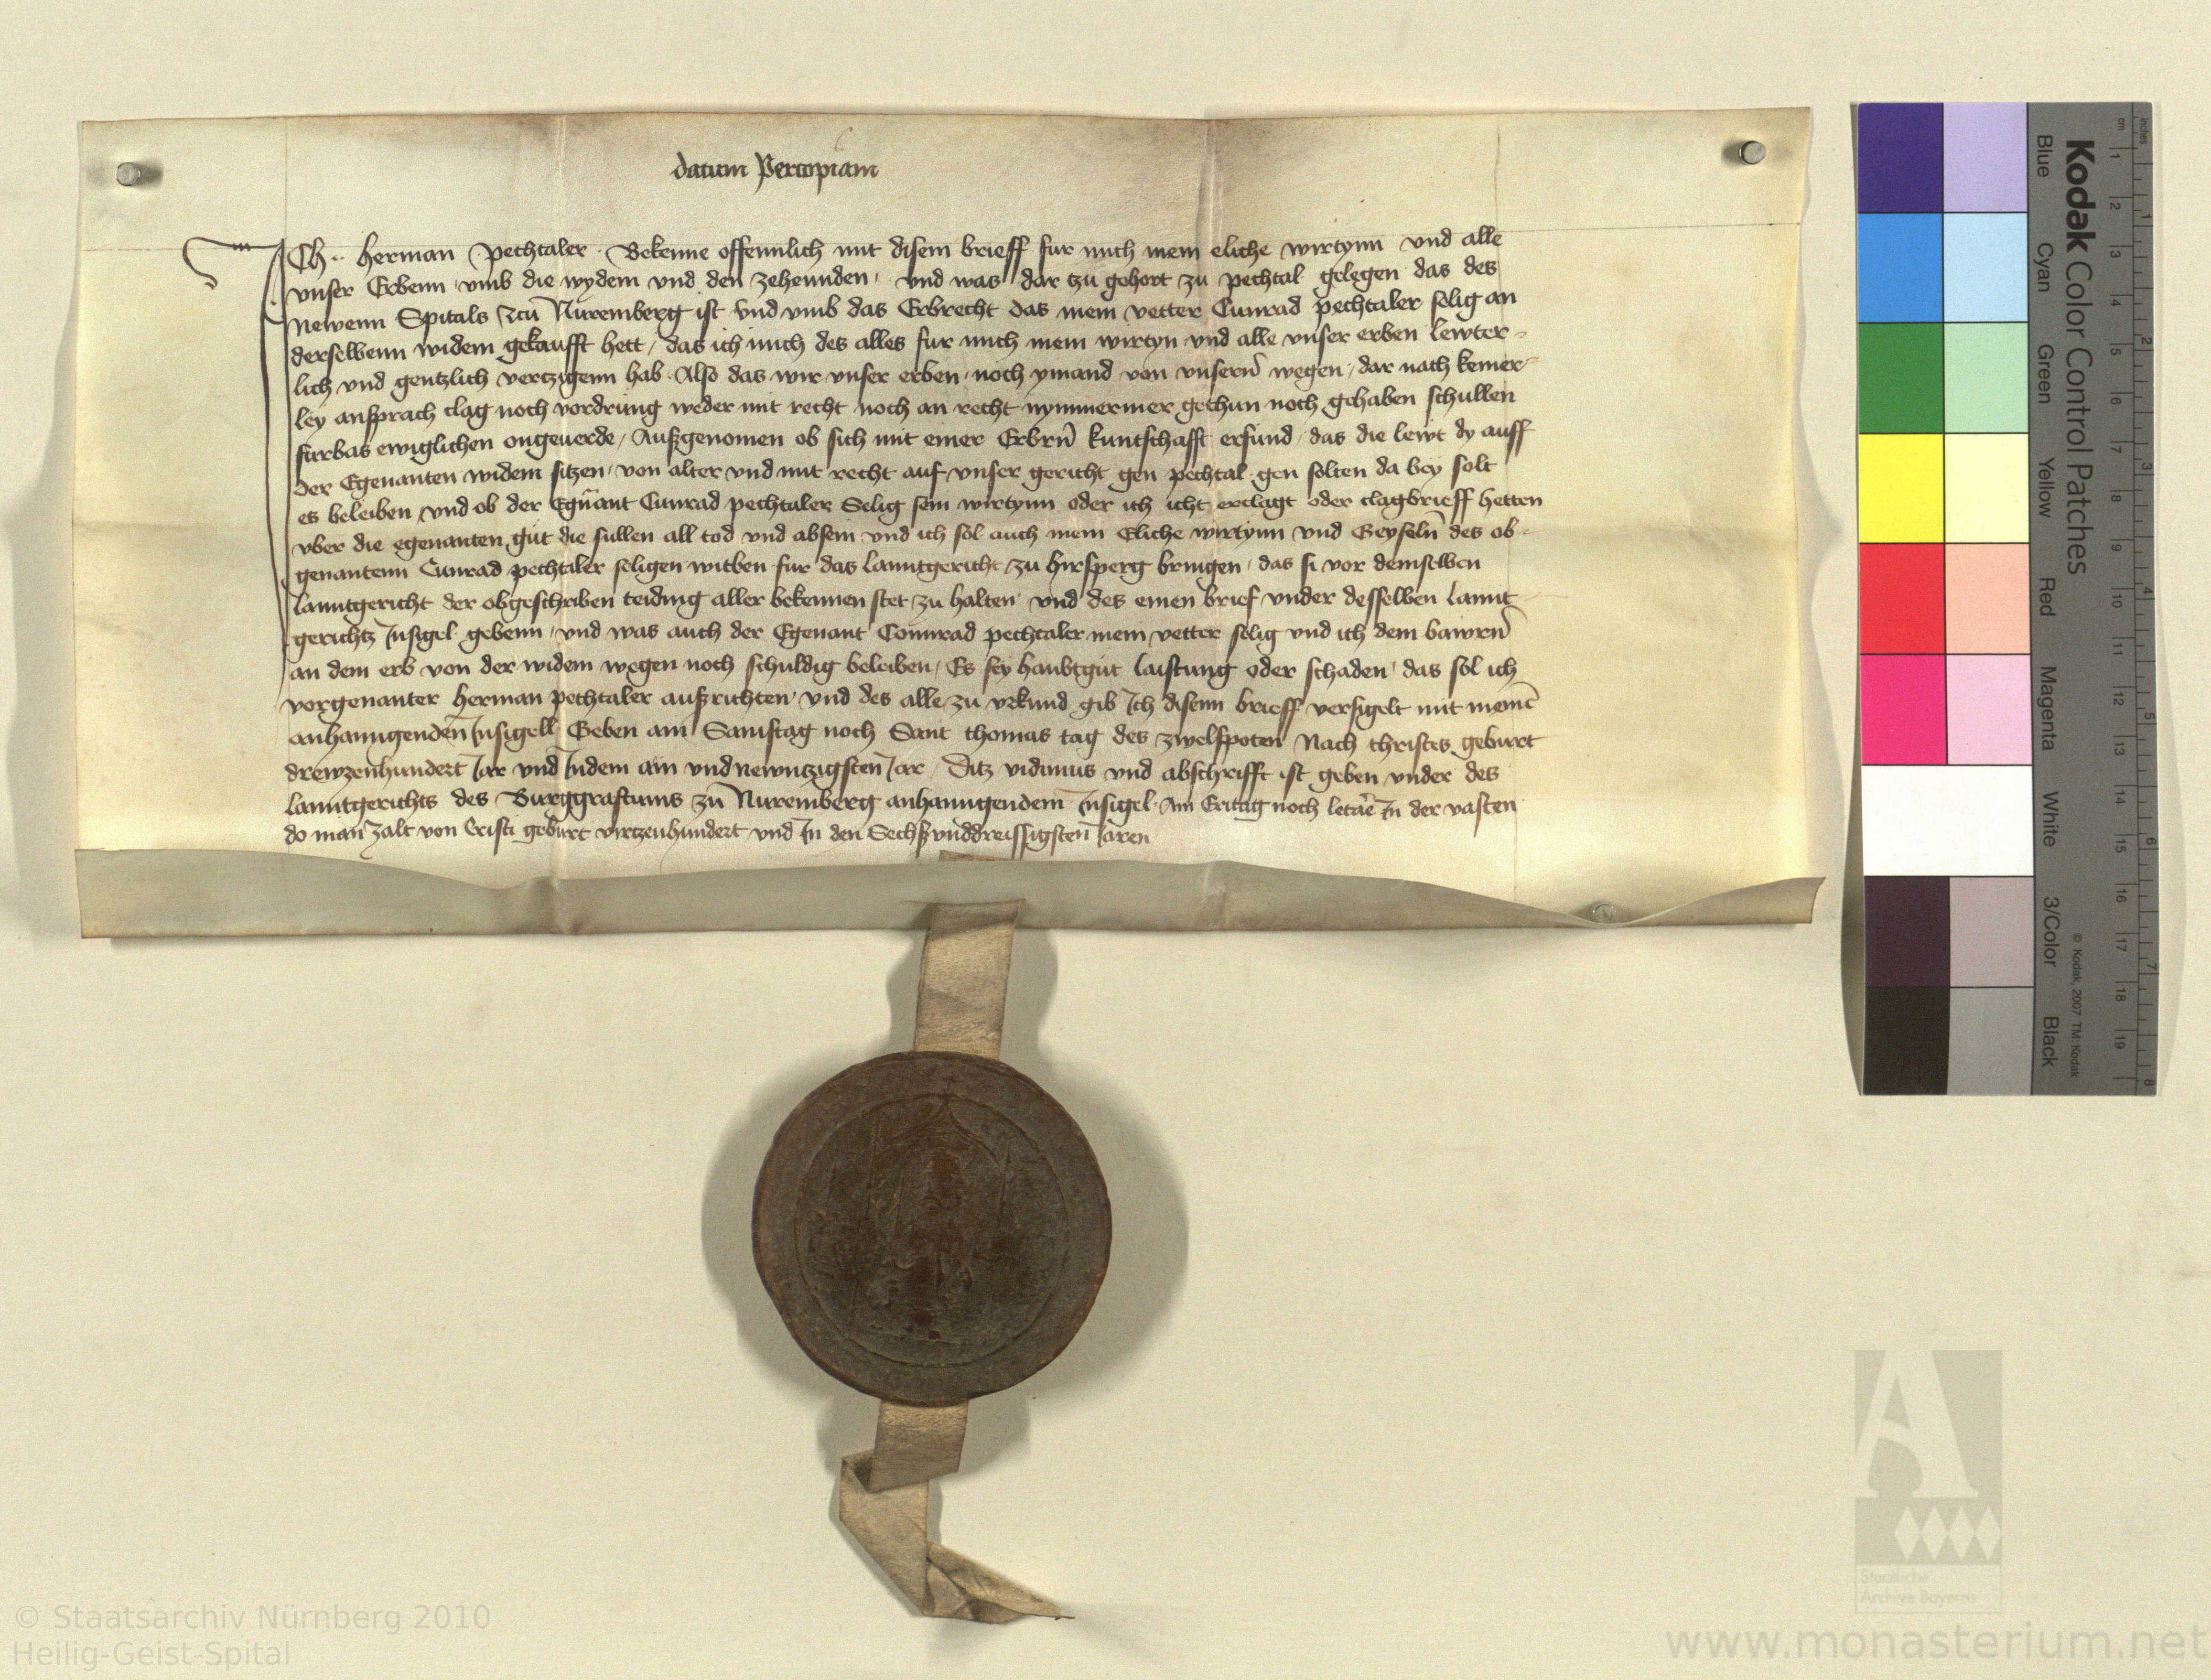 datum Per copiam
ICh herman Pechtaler Bekenne offennlich mit disem brieff fur mich mein eliche wirtynn vnd alle
vnser Erbenn vmb die wydem vnd den zehennden vnd was dar tzu gehort zu pechtal gelegen das des
Newenn Spitals zcu Nuremberg ist vnd vmb das Erbrecht das mein vetter Cunrad pechtaler selig an
derselbenn widem gekaufft hett / das ich mich des alles fur mich mein wirtyn vnd alle vnser erben lewter-
lich vnd gentzlich vertzigenn hab Also das wir vnser erben noch ymand von vnsern̄ wegen / dar nach keiner-
ley ansprach clag noch vordrung weder mit recht noch an recht nymmermer gethun noch gehaben schullen
furbas ewiglichen ongeuerde / Außgenomen ob sich mit einer Erbrn̄ kuntschafft erfund / das die lewt dy auff
der Egenanten widem sitzen / von alter vnd mit recht auf vnser gericht gen pechtal gen solten da bey solt
es beleiben vnd ob der Egn̄ant Cunrad pechtaler Selig sein wirtynn oder ich icht erclagt oder clagbrieff hetten
vber die egenanten gut die sullen all tod vnd absein vnd ich sol auch mein Eliche wirtynn vnd Geyseln̄ des ob-
genantenn Cunrad pechtaler seligen witben fur das lanntgericht zu hirsperg bringen / das si vor demselben
lanntgericht der obgeschriben teiding aller bekennen stet zu halten vnd des einen brief vnder desselben lannt
gerichtz Insigel gebenn / vnd was auch der Egenant Connrad pechtaler mein vetter selig vnd ich dem bawrn̄
an dem erb von der widem wegen noch schuldig beleiben / Es sey haubtgut laistung oder schaden das sol ich
vorgenanter herman pechtaler außrichten vnd des alle zu vrkund gib Ich disenn brieff versigelt mit meinē
anhanngenden Insigell Geben am Samstag noch Sant thomas tag des zwelfpoten Nach christes geburt
drewzenhundert Jar vnd Indem ain vnd newntzigsten Jar / Ditz vidimus vnd abschrifft ist geben vnder des
lanntgerichts des Burggraftums zu Nuremberg anhanngendem Insigel Am Eritag noch letare In der vasten
do man zalt von Cristi geburt virtzenhundert vnd In den Sechßvnddreissigsten Jaren
Kodak Color Control Patches
Blue Cyan Green Yellow Red Magenta White 3/Color Black
© Kodak, 2007 TM: Kodak
cm 1 2 3 4 5 6 7 8 9 10 11 12 13 14 15 16 17 18 19
inches 1 2 3 4 5 6 7 8
Staatliche
Archive Bayerns
© Staatsarchiv Nürnberg 2010
Heilig-Geist-Spital
www.monasterium.net